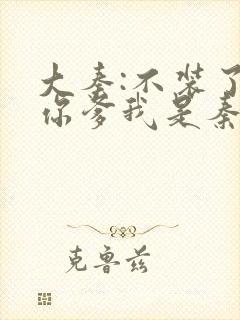 大秦:不装了
你爹我是秦
克鲁兹